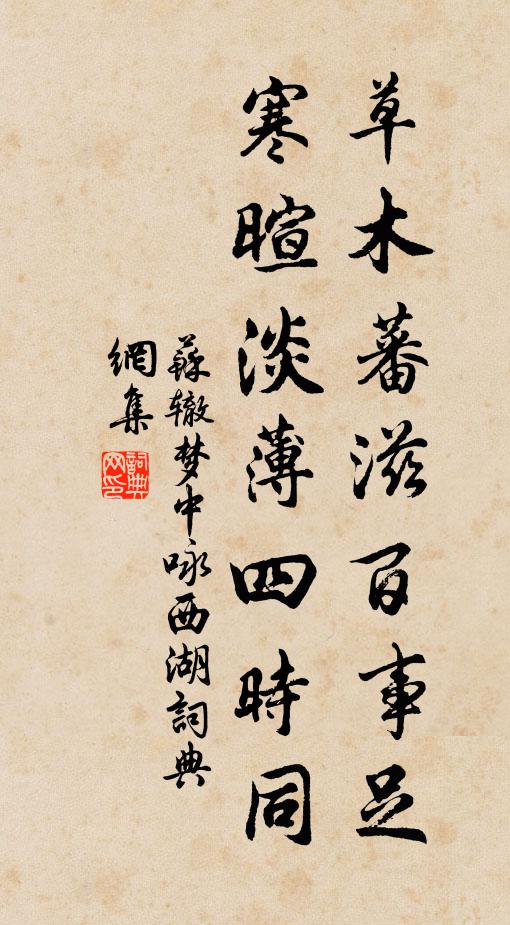 草木蕃滋百事足
寒暄淡薄四時同
蘇辙梦中咏西湖詞典
網集
詞典網印